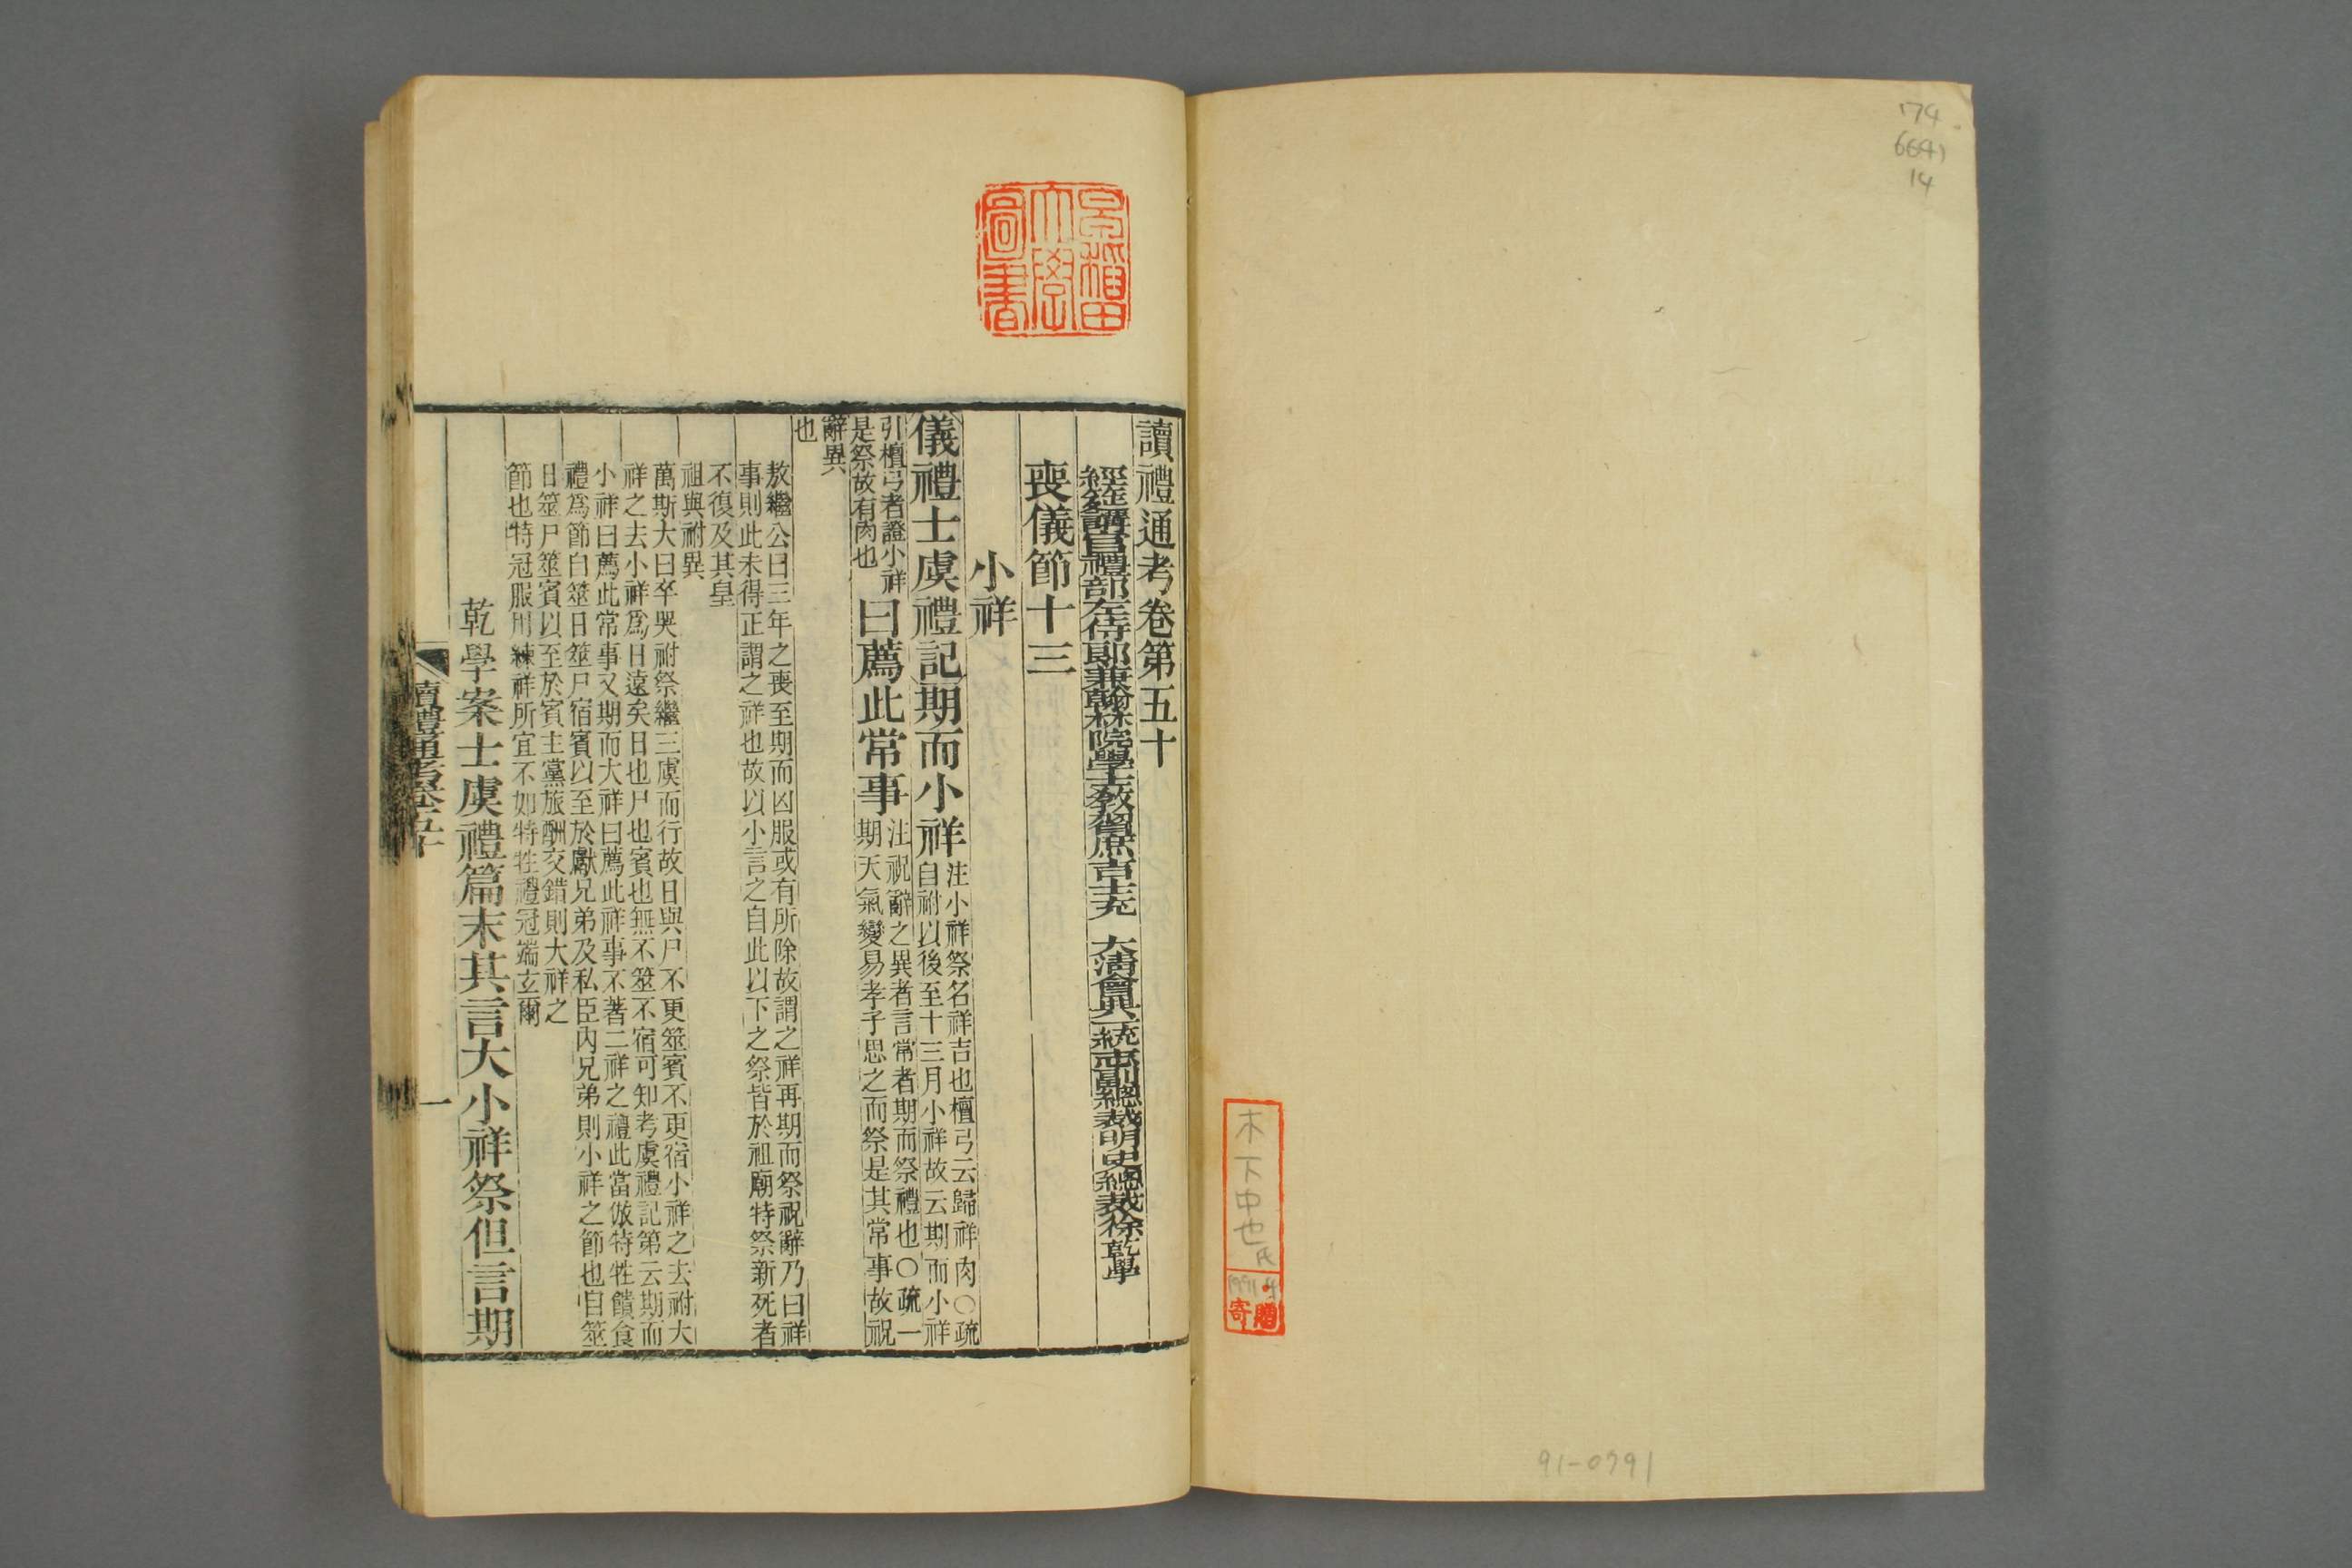 174
6641
14
木下中也氏
寄贈
91-0791
早稲田大學圖書
讀禮通考卷第五十
經筵講官禮部左侍郎兼翰林院學士敎習庶吉士充 大淸會典一統志副總裁明史總裁徐乾學
喪儀節十三
小祥
儀禮士虞禮記期而小祥
注小祥祭名祥吉也檀弓云歸祥肉○疏
自祔以後至十三月小祥故云期而小祥
引檀弓者證小祥
是祭故有肉也
曰薦此常事
注祝辭之異者言常者期而祭禮也○疏一
期天氣變易孝子思之而祭是其常事故祝
辭異
也
敖繼公曰三年之喪至期而凶服或有所除故謂之祥再期而祭祝辭乃曰祥
事則此未得正謂之祥也故以小言之自此以下之祭皆於祖廟特祭新死者
不復及其皇
祖與祔異
萬斯大曰卒哭祔祭繼三虞而行故日與尸不更筮賓不更宿小祥之去祔大
祥之去小祥爲日遠矣日也尸也賓也無不筮不宿可知考虞禮記第云期而
小祥曰薦此常事又期而大祥曰薦此祥事不著二祥之禮此當倣特牲饋食
禮爲節自筮日筮尸宿賓以至於獻兄弟及私臣內兄弟則小祥之節也自筮
日筮尸筮賓以至於賓主黨旅酬交錯則大祥之
節也特冠服用練祥所宜不如特牲禮冠端玄爾
乾學案士虞禮篇末其言大小祥祭但言期
讀禮通考卷五十
一